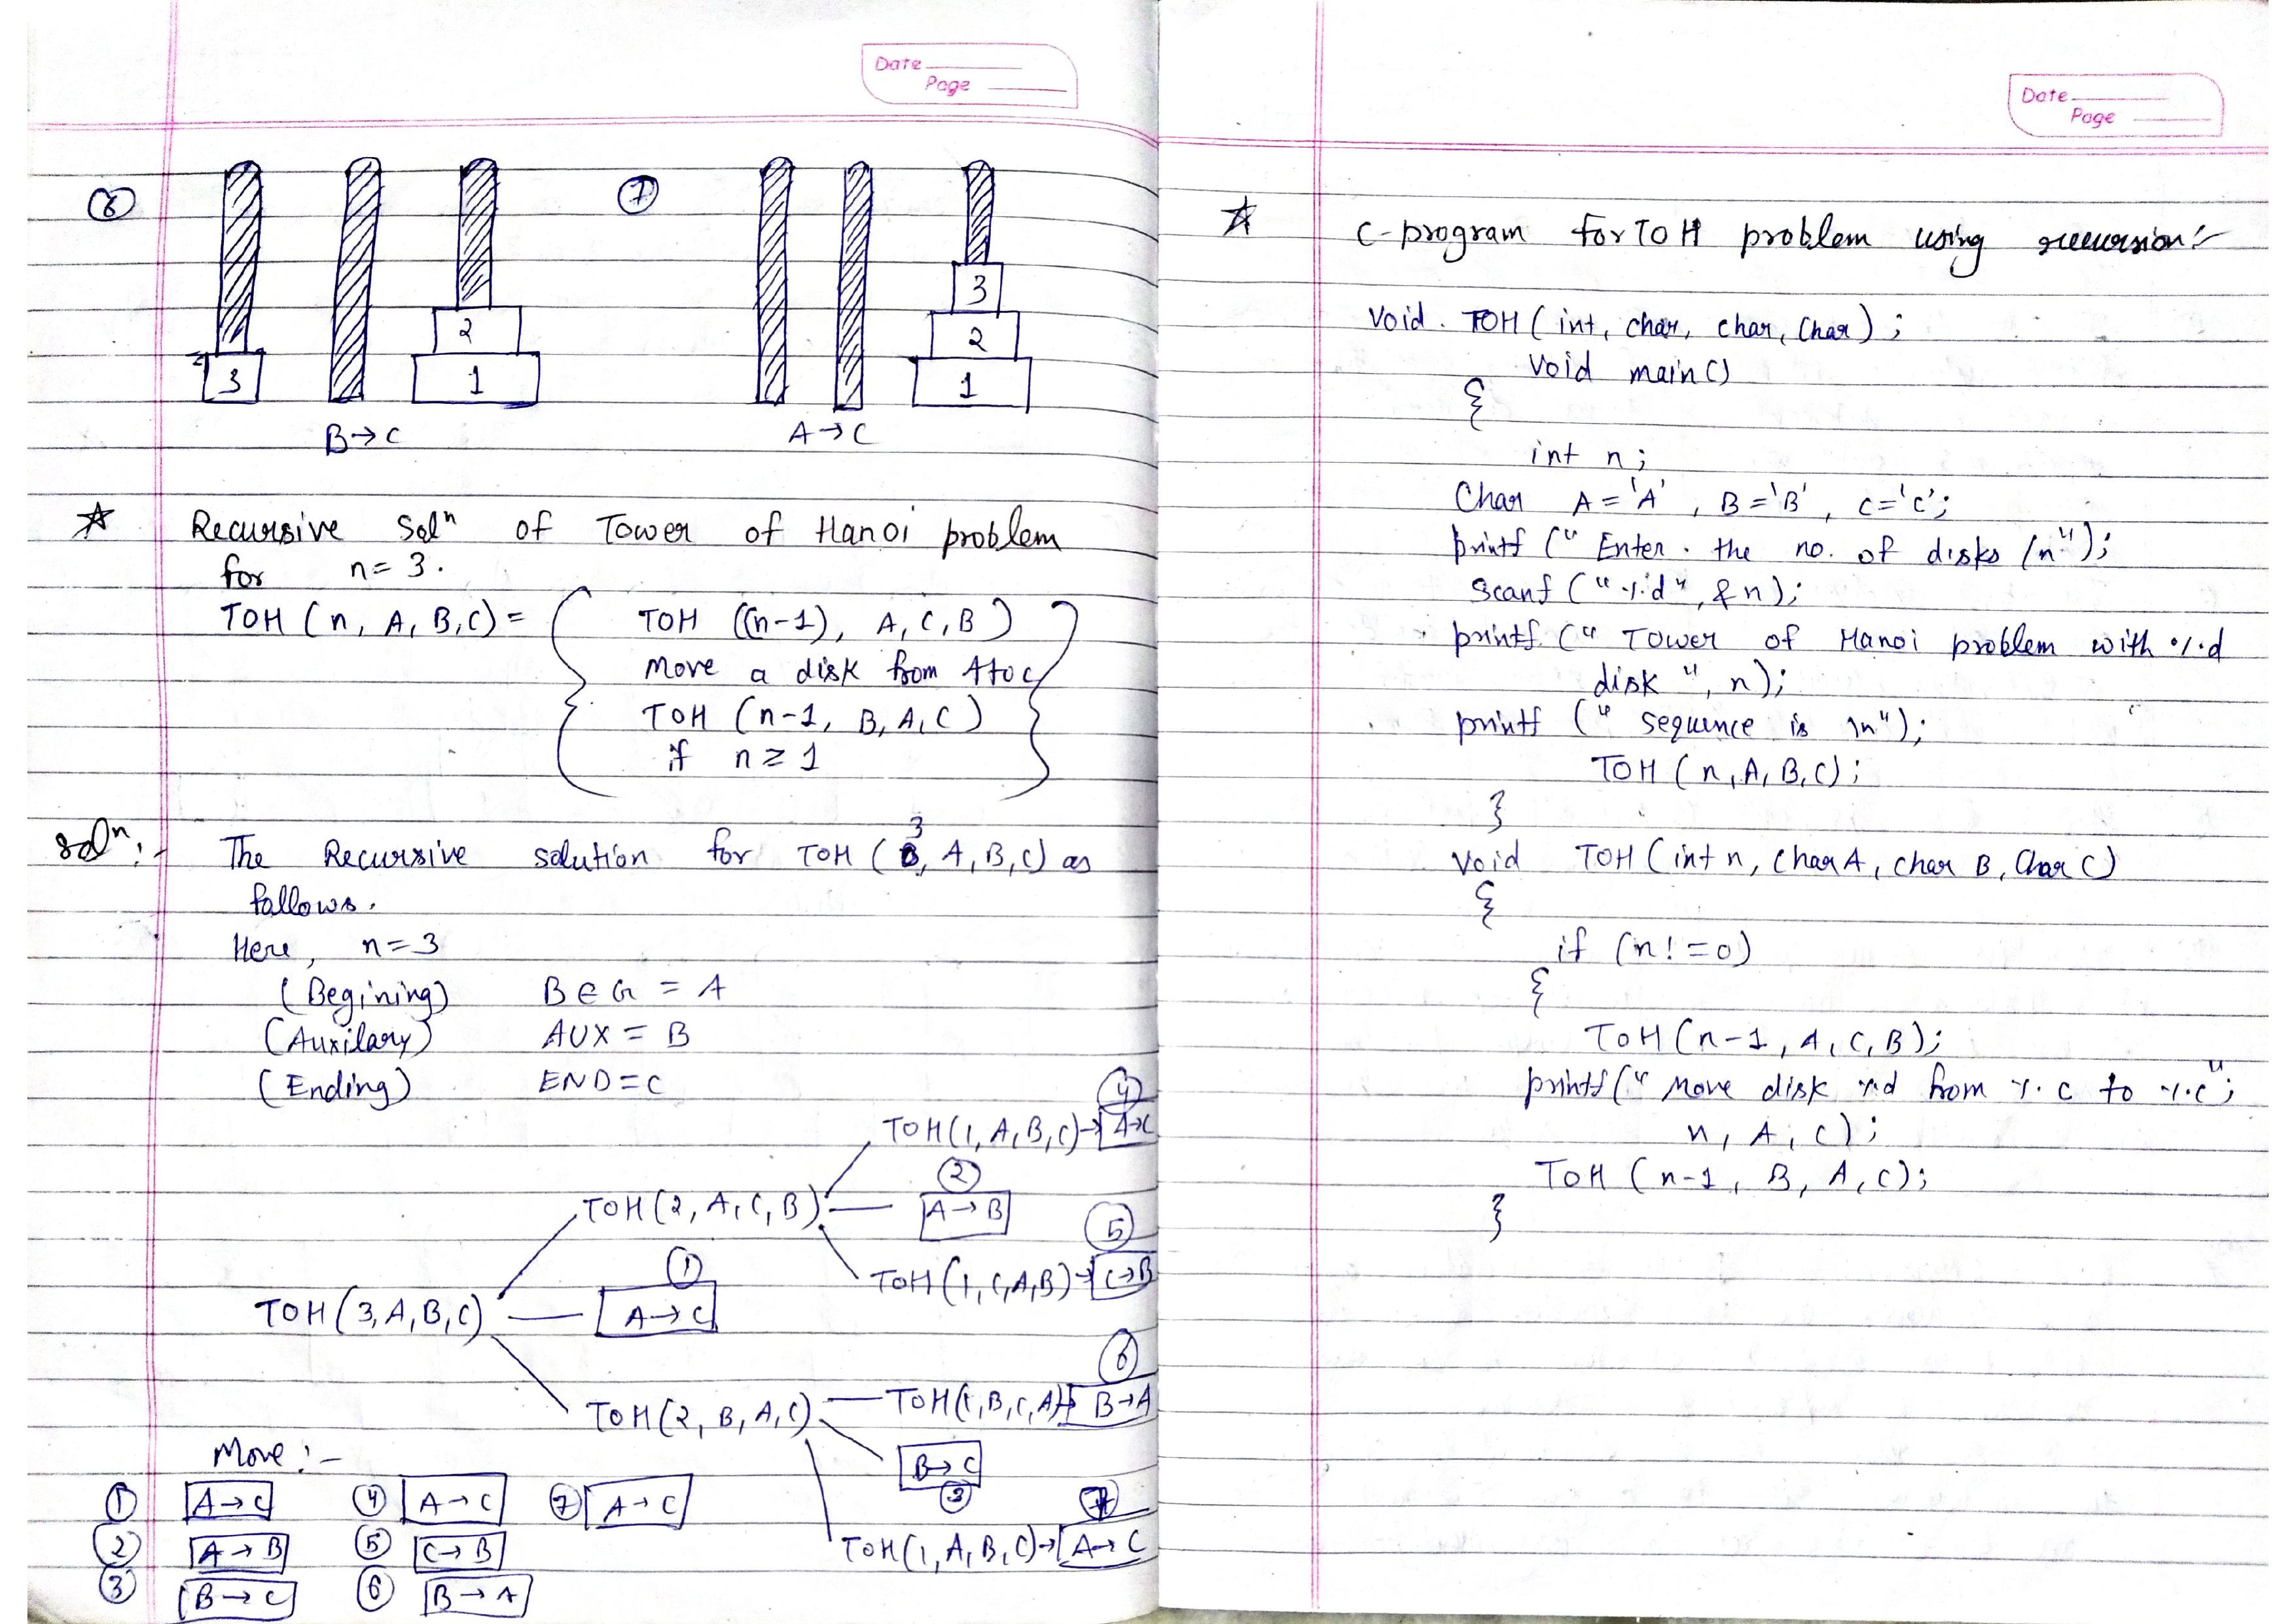 Date
Page
⑥
⑦
3
2
1
3
2
1
B→C
A→C
☆ Recursive Solⁿ of Tower of Hanoi problem
for n=3.
TOH (n, A, B, C) = TOH ((n-1), A, C, B)
Move a disk from A to C
TOH (n-1, B, A, C)
if n ≥ 1
Solⁿ:- The Recursive solution for TOH (3, A, B, C) as
follows.
Here, n=3
(Begining) BEG = A
(Auxilary) AUX = B
(Ending) END = C
④
TOH(1, A, B, C)→ A→C
②
TOH(2, A, C, B) A→B
⑤
①
TOH(1, C, A, B)→ C→B
TOH(3, A, B, C) A→C
⑥
TOH(2, B, A, C) TOH(1, B, C, A)→ B→A
B→C
③
⑦
TOH(1, A, B, C)→ A→C
Move :-
① A→C ④ A→C ⑦ A→C
② A→B ⑤ C→B
③ B→C ⑥ B→A
Date
Page
☆ C-program for TOH problem using recursion:-
Void TOH (int, char, char, Char);
Void main()
{
int n;
Char A = 'A', B = 'B', C = 'C';
printf (" Enter the no. of disks /n");
Scanf ("%d", &n);
printf (" Tower of Hanoi problem with %d
disk ", n);
printf (" sequence is \n");
TOH (n, A, B, C);
}
Void TOH (int n, Char A, char B, Char C)
{
if (n != 0)
{
TOH (n-1, A, C, B);
printf (" Move disk %d from %c to %c";
n, A, C);
TOH (n-1, B, A, C);
}